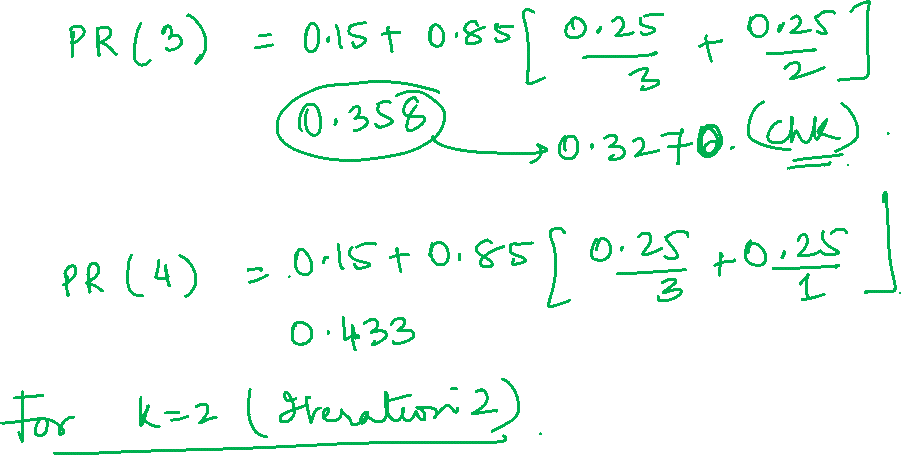 PR (3) = 0.15 + 0.85 [ 0.25/3 + 0.25/2 ]
0.358 → 0.3270. (chk).
PR (4) = 0.15 + 0.85 [ 0.25/3 + 0.25/1 ]
0.433
For k=2 (Iteration 2).